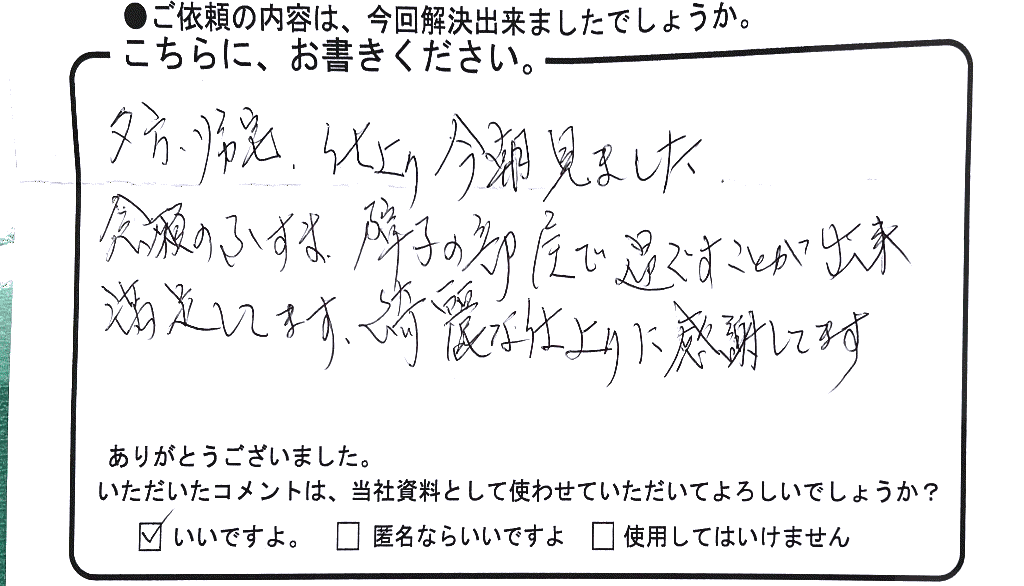 ●ご依頼の内容は、今回解決出来ましたでしょうか。
こちらに、お書きください。
夕方、帰宅、仕上り今朝見ました、
念願のふすま、障子の部屋で過ごすことが出来
満足してます、綺麗な仕上りに感謝してます
ありがとうございました。
いただいたコメントは、当社資料として使わせていただいてよろしいでしょうか？
☑いいですよ。 □匿名ならいいですよ □使用してはいけません